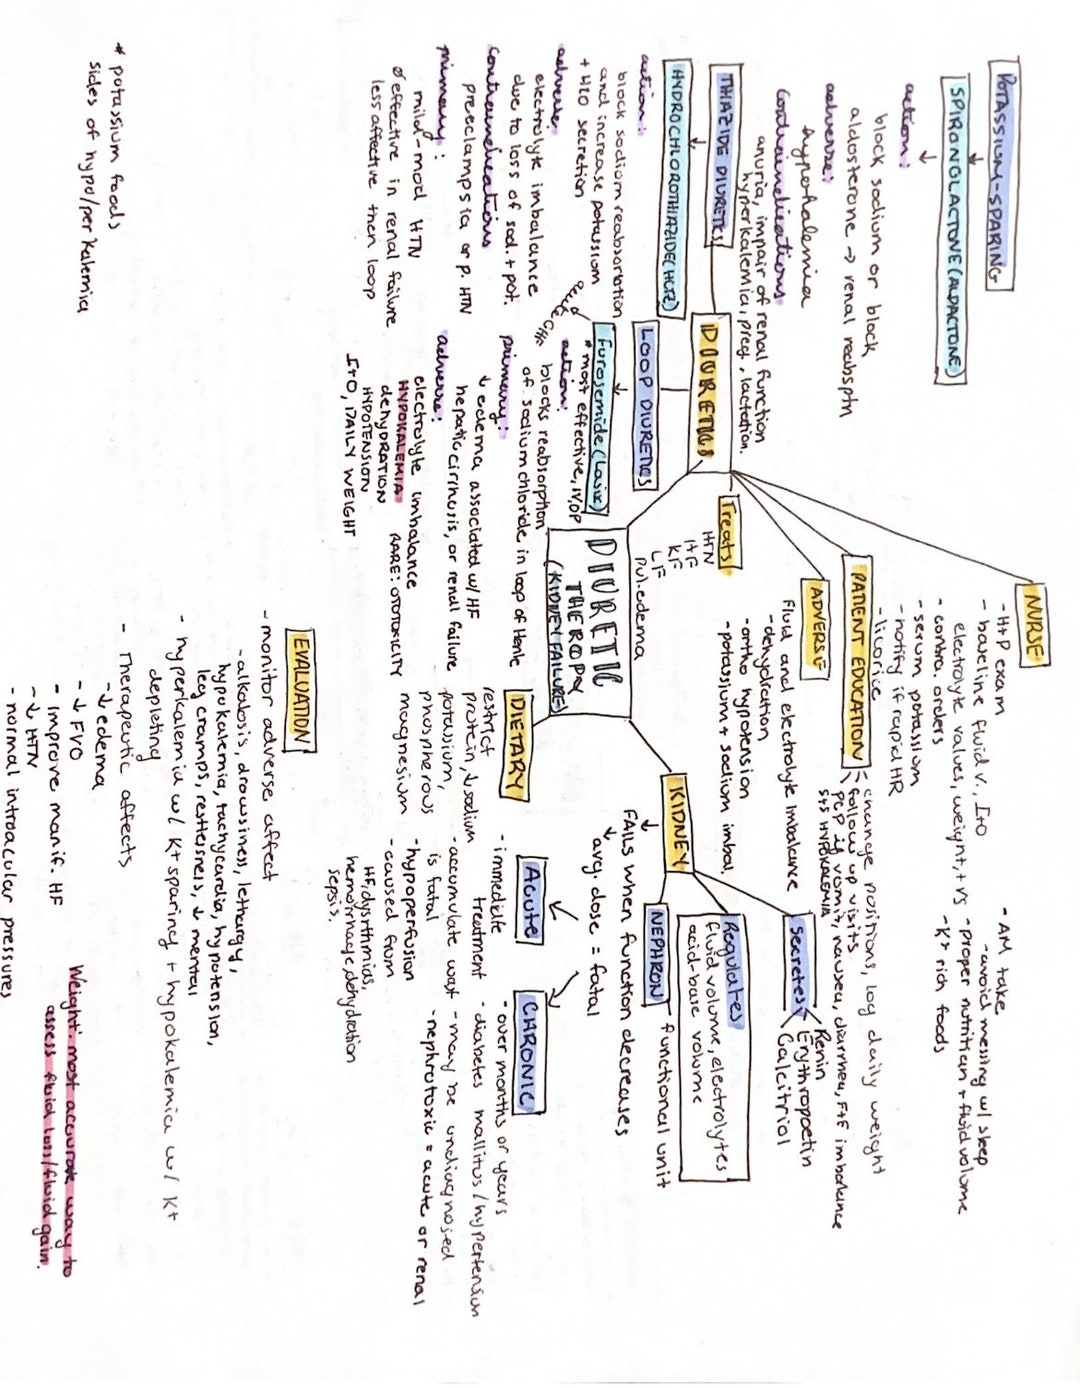 POTASSIUM-SPARING
SPIRONOLACTONE (ALDACTONE)
action:
block sodium or block
aldosterone → renal reabsptn
adverse:
hypothalemia
contraindications
anuria, impair of renal function
hyperkalemia, preg, lactation.
THIAZIDE DIURETICS
HYDROCHLOROTHIAZIDE (HCTZ)
action:
block sodium reabsorbtion
and increase potassium
+ H2O secretion
adverse
electrolyte imbalance
due to loss of sod. + pot.
contraindications
preeclampsia or p. HTN
primary:
mild-mod HTN
∅ effective in renal failure
less affective then loop
* potassium foods
sides of hypo/per kalemia
DIURETICS
LOOP DIURETICS
furosemide (Lasix)
* most effective, IV, OP
action:
blocks reabsorption
of sodium chloride in loop of Henle
primary:
↓ edema associated w/ HF
hepatic cirrhosis, or renal failure
adverse:
electrolyte imbalance
HYPOKALEMIA
RARE: OTOTOXICITY
dehydration
HYPOTENSION
I+O, DAILY WEIGHT
Treats
HTN
HF
KF
LF
pul. edema
DIURETIC
THEROPY
(KIDNEY FAILURE)
NURSE
- H+P exam
- baseline fluid v., I+O
electrolyte values, weight, + vs
- contra. orders
- serum potassium
- notify if rapid HR
- licorice
- AM take
- avoid messing w/ sleep
- proper nutrition + fluid volume
- K+ rich foods
PATIENT EDUCATION
change positions, log daily weight
follow up visits
PCP if vomit, nausea, diarrhea, F+E imbalance
S+S HYPOKALEMIA
ADVERSE
fluid and electrolyte imbalance
- dehydration
- ortho hypotension
- potassium + sodium imbal.
KIDNEY
secretes
Renin
Erythropoetin
Calcitriol
Regulates
fluid volume, electrolytes
acid-base volume
NEPHRON
functional unit
FAILS when function decreases
↓ avg. dose = fatal
Acute
- immediate
treatment
- accumulate wast
is fatal
- hypoperfusion
- caused from
HF, dysrthmias,
hemorrhage, dehydration
sepsis.
CHRONIC
- over months or years
- diabetes mallitus / hypertension
- may be undiagnosed
- nephrotoxic = acute or renal
DIETARY
restrict
protein, ↓ sodium
potassium,
phospherous
magnesium
EVALUATION
- monitor adverse affect
- alkalosis, drowsiness, lethargy,
hypokalemia, tachycardia, hypotension,
leg cramps, restlesness, ↓ mental
- hyperkalemia w/ K+ sparing + hypokalemica w/ K+
depleting
- Therapeutic affects
- ↓ edema
- ↓ FVO
- improve manif. HF
- ↓ HTN
- normal introacular pressures
Weight: most accurate way to
assess fluid loss/fluid gain.